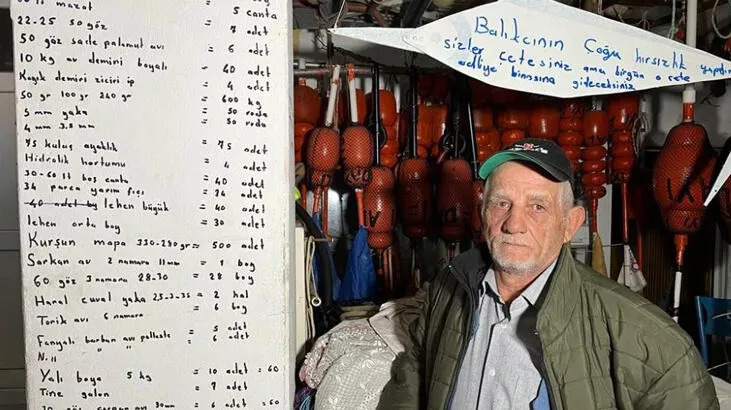 lt mazot = 5 canta
22-25 50 göz = 7 adet
50 göz sade palamut avı = 6 adet
10 kg av demiri boyalı = 40 adet
Kayık demiri ziciri ip = 4 adet
50 gr 100 gr 240 gr = 600 kg
5 mm yaka = 50 roda
4 mm 3.5 mm = 50 roda
75 kulaç ayaklık = 75 adet
Hidrolik hortumu = 4 adet
30-60 lt boş canta = 40 adet
34 parça yarım fıçı = 24 adet
40 adet boy Lehen büyük = 40 adet
lehen orta boy = 30 adet
Kurşun mapa 330-280 gr = 500 adet
Sarkan av 2 namara 11 mm = 1 boy
60 göz 3 namara 28-30 = 28 boy
Hanal cuval yaka 25-3-35 = 2 hal
Torik avı 6 namara = 6 boy
Fanyalı barbun avı palleste = 5 adet
N. 11 " " = 6 adet
Yalı boya 5 kg = 10 adet = 60
Tine galon = 7 adet
30 göz 30mm = 6 adet = 60
Balıkcının Çoğu hırsızlık yapıyor
sizler çetesiniz ama birgün o cete
adliye binasına gideceksiniz